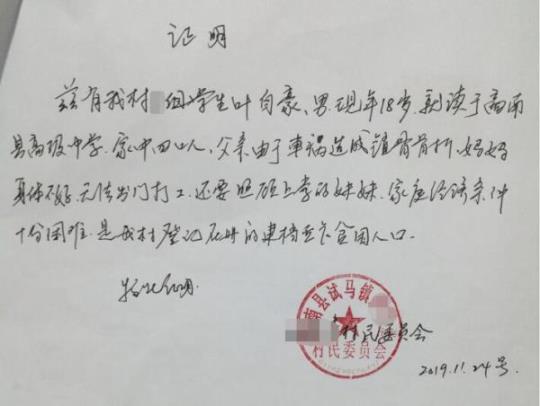 证明
兹有我村 组学生叶自豪、男.现年18岁.就读于商南
县高级中学.家中四口人,父亲由于車祸造成锁骨骨折.妈妈
身体不好.无法出门打工.还要照顾上学的妹妹.家庭经济条件
十份困难.是我村登记在册的建档立卡贫困人口.
特此证明.
南县试马镇
村民委员会
村民委员会
2019.11.24号